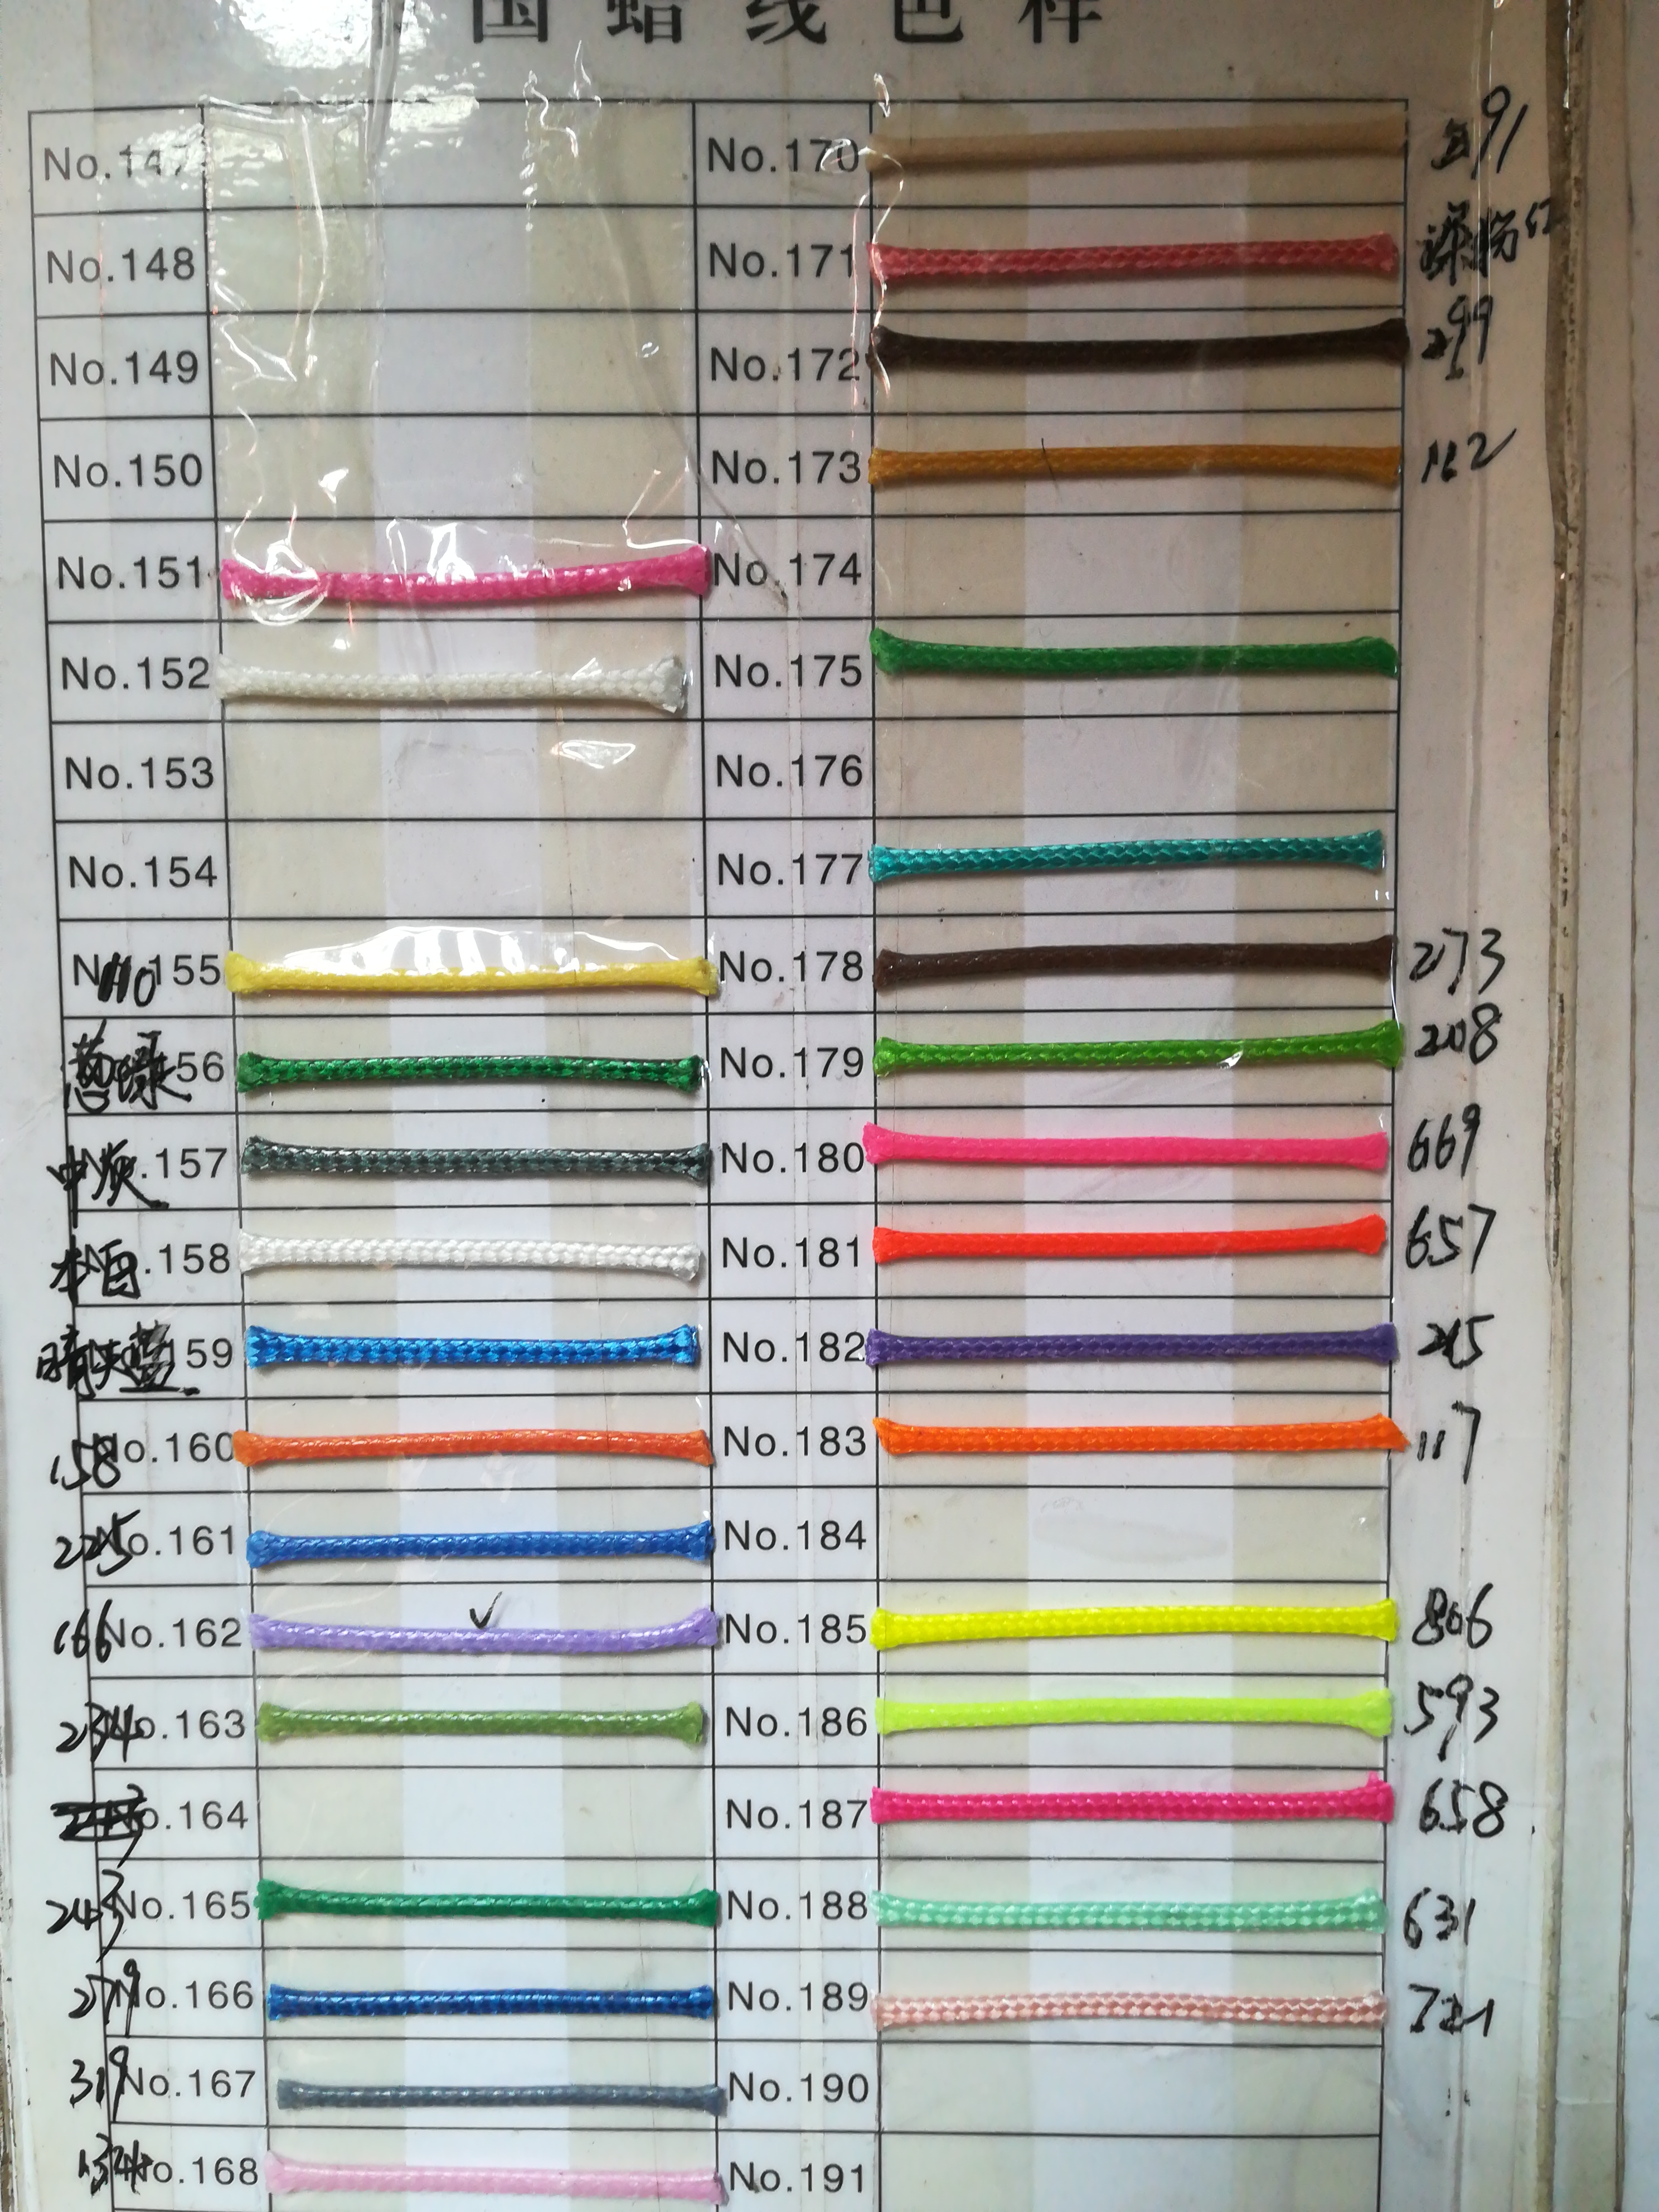 国蜡线色样
No.147 No.170
No.148 No.171 深粉红
No.149 No.172 299
No.150 No.173 112
No.151 No.174
No.152 No.175
No.153 No.176
No.154 No.177
110 155 No.178 273
葱绿 56 No.179 208
中灰 .157 No.180 669
本白 .158 No.181 657
晴天蓝 159 No.182 215
158 No.160 No.183 117
225 No.161 No.184
166 No.162 No.185 806
234 No.163 No.186 593
No.164 No.187 658
243 No.165 No.188 631
279 No.166 No.189 721
319 No.167 No.190
134 No.168 No.191